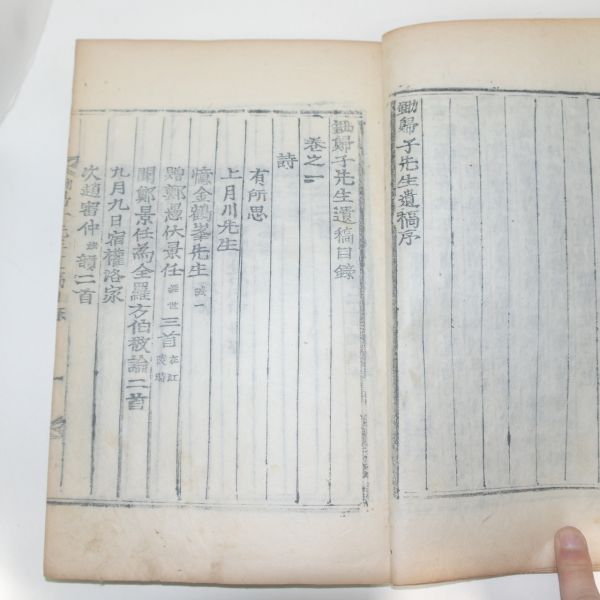 鋤歸子先生遺稿序
鋤歸子先生遺稿目錄
卷之一
詩
有所思
上月川先生
憶金鶴峯先生 誠一
贈鄭愚伏景任 經世 三首 在江陵時
聞鄭景任爲全羅方伯被論二首
九月九日宿權洛家
次趙審仲 韻二首